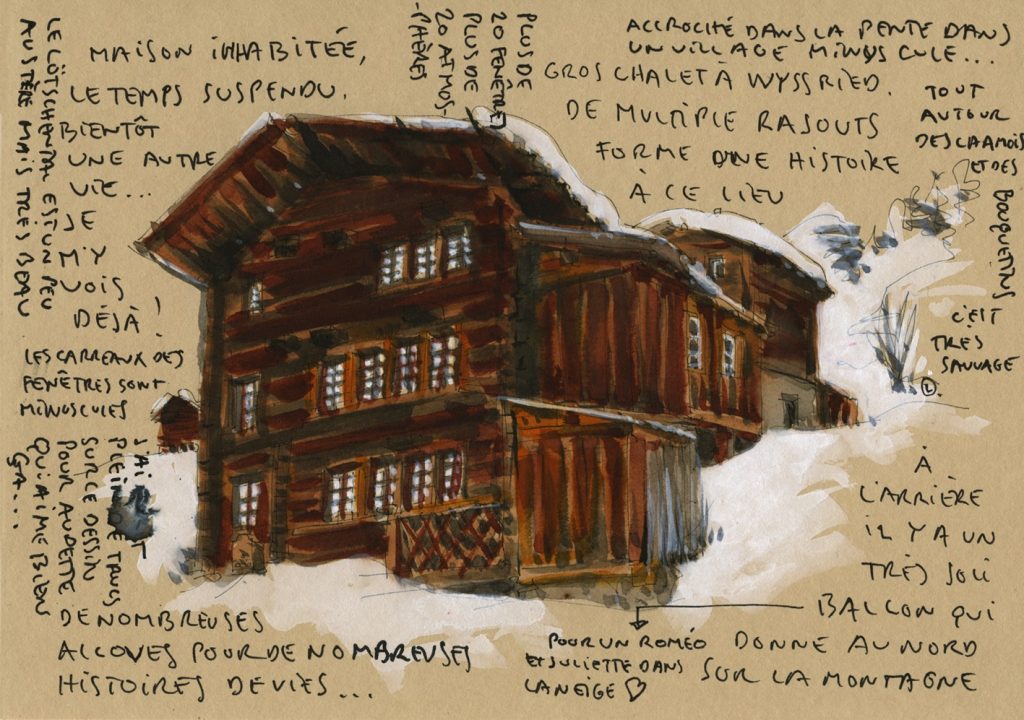 LE LÖTSCHENTAL EST UN PEU
AUSTÈRE MAIS TRÈS BEAU
MAISON INHABITÉE,
LE TEMPS SUSPENDU.
BIENTÔT
UNE AUTRE
VIE...
JE
M'Y
VOIS
DÉJÀ !
LES CARREAUX DES
FENÊTRES SONT
MINUSCULES
J'AI FAIT
PLEIN DE TRUCS
SUR CE DESSIN
POUR AUDETTE
QUI AIME BIEN
ÇA...
PLUS DE
20 FENÊTRES
PLUS DE
20 ATMOS-
-PHÈRES
ACCROCHÉ DANS LA PENTE DANS
UN VILLAGE MINUSCULE...
GROS CHALET À WYSSRIED.
DE MULTIPLE RAJOUTS
FORME D'UNE HISTOIRE
À CE LIEU
TOUT
AUTOUR
DES CHAMOIS
ET DES
BOUQUETINS
C'EST
TRÈS
SAUVAGE
À
L'ARRIÈRE
IL Y A UN
TRÈS JOLI
BALCON QUI
DONNE AU NORD
SUR LA MONTAGNE
POUR UN ROMÉO
ET JULIETTE DANS
LA NEIGE ♡
DE NOMBREUSES
ALCOVES POUR DE NOMBREUSES
HISTOIRES DE VIES...